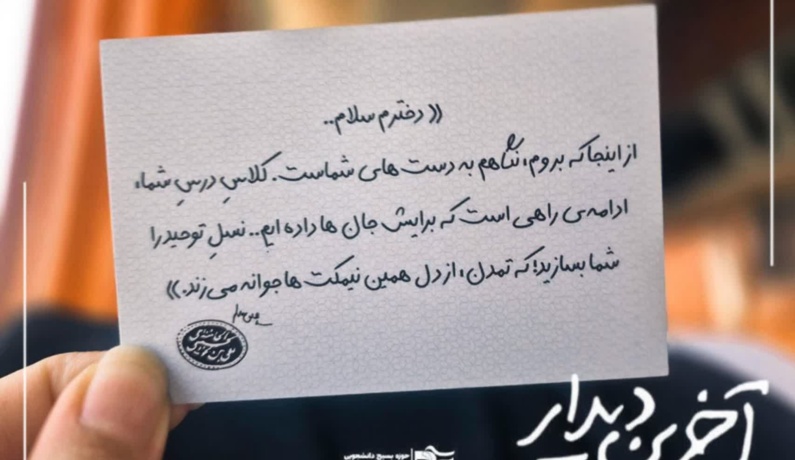 « دخترم سلام..
از اینجا که بروم، نگاهم به دست‌های شماست. کلاسِ درسِ شما،
ادامه‌ی راهی است که برایش جان‌ها داده‌ایم.. نسلِ توحید را
شما بسازید! که تمدن، از دل همین نیمکت‌ها جوانه می‌زند.»
آخرین دیدار
حوزه بسیج دانشجویی